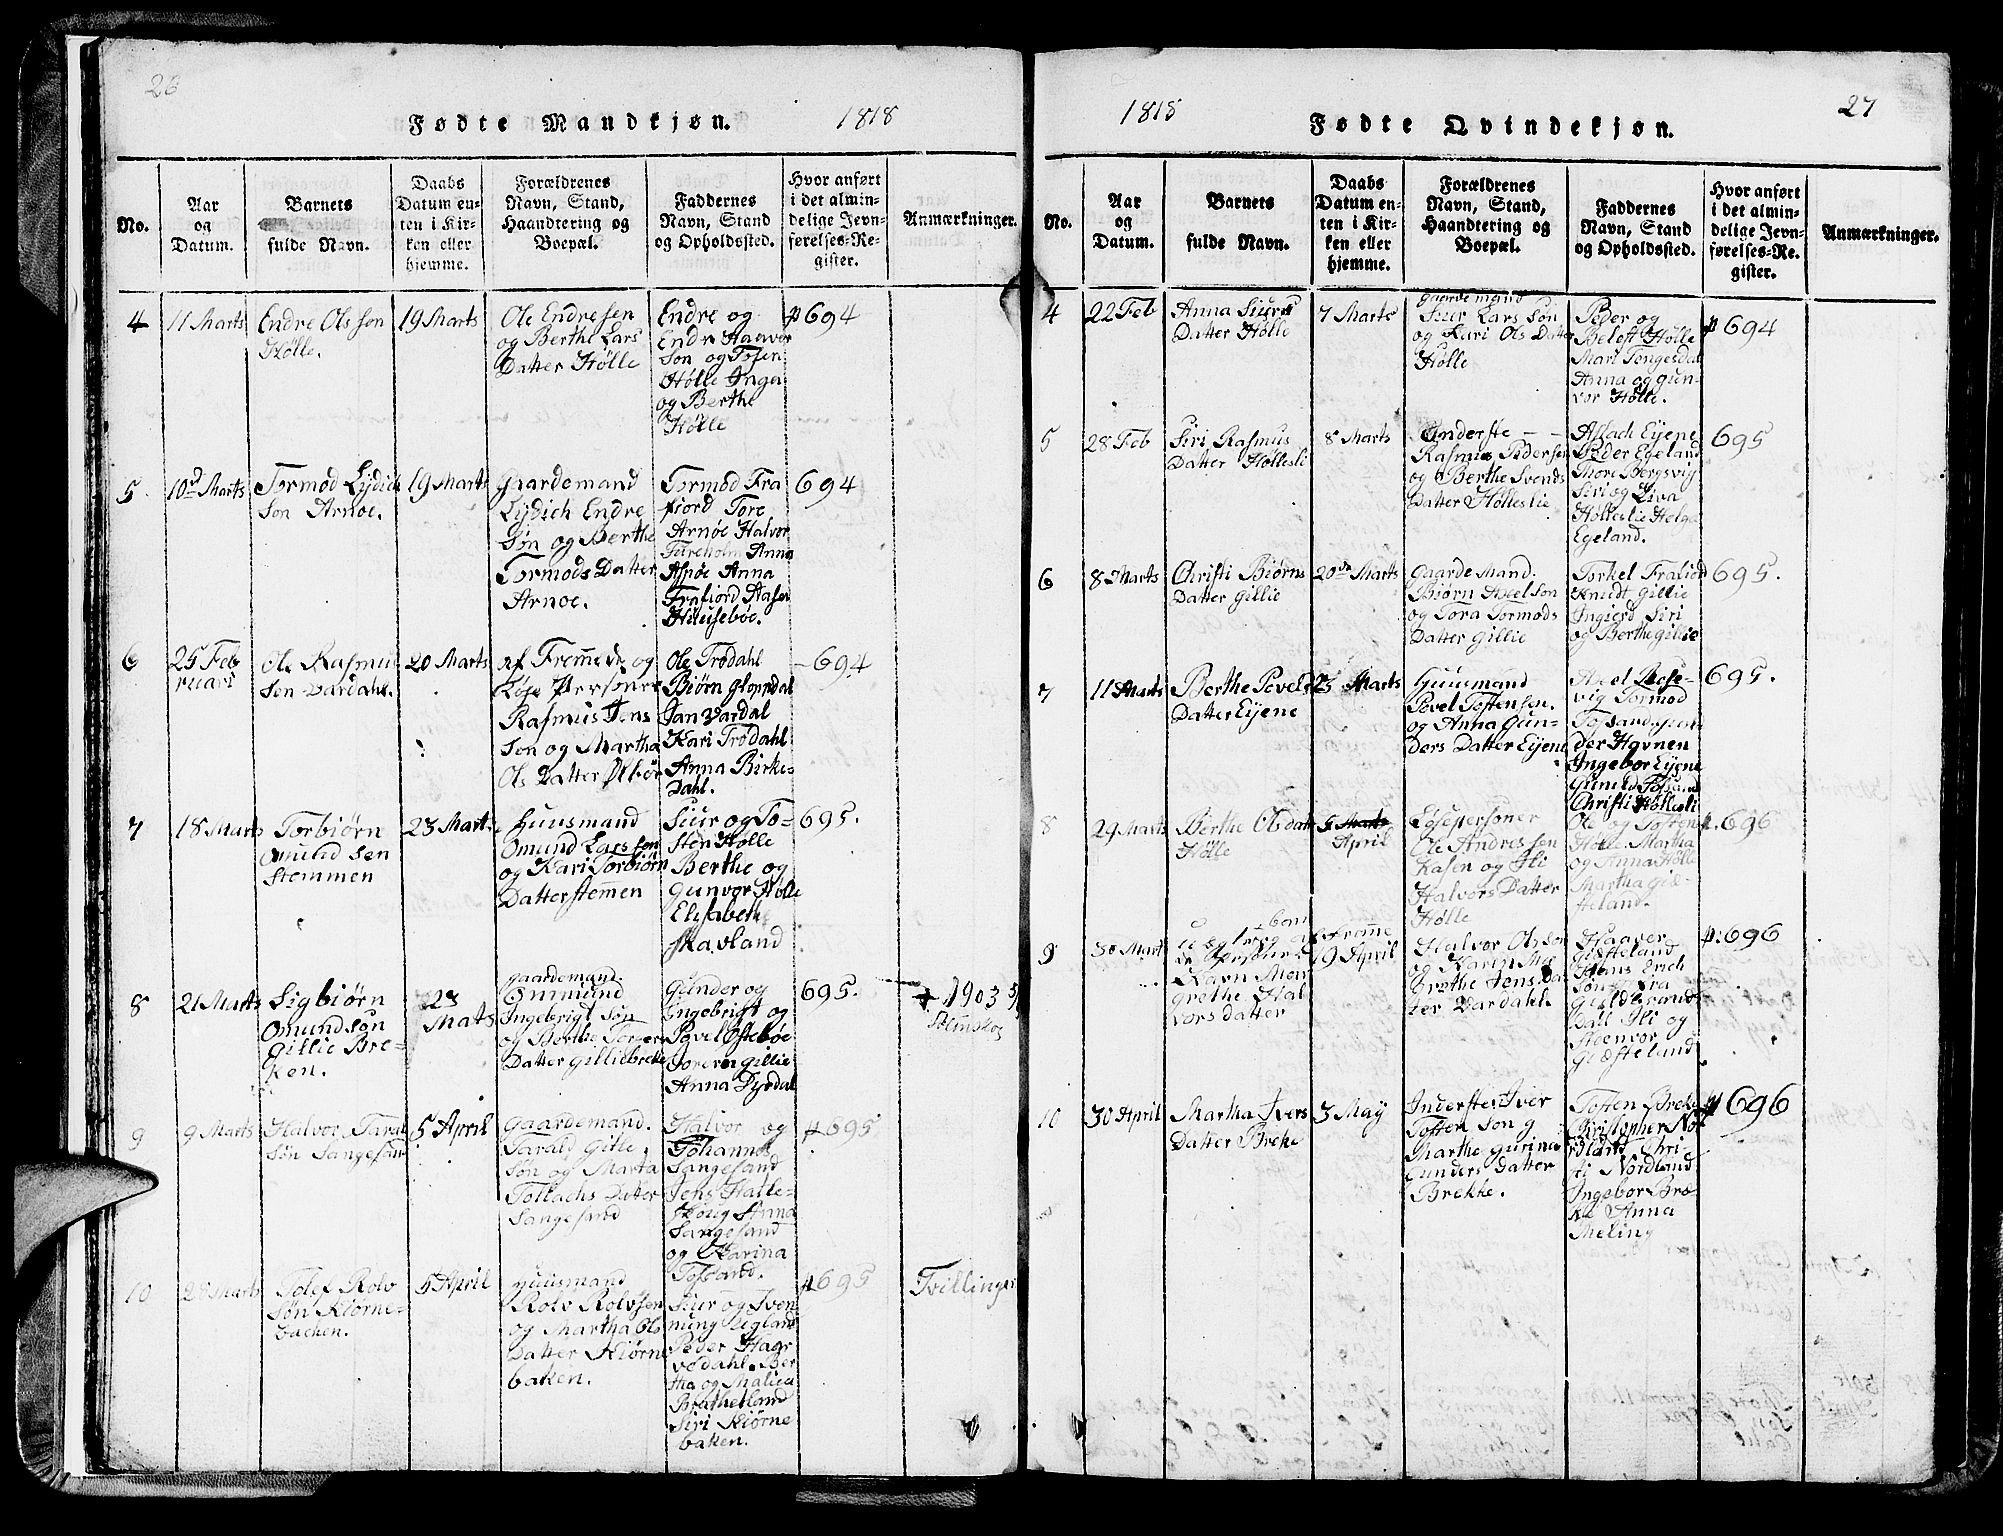 26
Fødte Mandkjøn.
1818
No.
Aar
og
Datum.
Barnets
fulde Navn.
Daabs
Datum en-
ten i Kir-
ken eller
hjemme.
Forældrenes
Navn, Stand,
Haandtering og
Boepæl.
Faddernes
Navn, Stand
og Opholdssted.
Hvor anført
i det almin-
delige Jevn-
førelses-Re-
gister.
Anmærkninger.
4
11 Marts
Endre Ols søn
Hølle.
19 Marts
Ole Endresen
og Berthe Lars
Datter Hølle
Endre og
Endr Haavor
søn og Tosen
Hølle Inger
og Berthe
Hølle
p 694
5.
10d Marts
Tormod Lydich
søn Arnoe.
19 Marts
Gaardemand
Lydich Endre
søn og Berthe
Tormods Datter
Arnoe.
Tormod Fra
fiord Tore
Arnøe Halvor
Fureholm Anna
Asnøe Anna
Frafiord Aase
Huusebøe.
694
6
25 Feb
ruari
Ole Rasmus
søn Vardahl.
20 Marts
af Fremede og
Løse Personer
Rasmus Jens
søn og Martha
Ols Datter
Ole Trødahl
Biørn Gloppdal
Jan Vardal
Kari Trødahl
Anna Birke-
Dahl.
694
7
18 Marts
Torbiørn
Omund søn
Stemmen
23 Mart.
Huusmand
Omund Lars søn
og Kari Torbiørn
Datter Stemen
Siur og To-
sten Hølle
Berthe og
Gunvor Hølle
Elisabeth
Skavland
695.
8
21 Marts
Sigbiørn
Omund søn
Gillie Bre-
ken.
23
Mats
gaardemand.
Ommund
Ingebrigt søn
og Berthe Torgers
Datter Gilliebrekke
Gunder og
Ingebrigt og
Povel Østebøe
Joren Gillie
Anna Dyrdal
695.
+ 1903
9
9 Marts
Halvor Taral
søn Sangesand
5 April
Gaardemand.
Tarald Gitle
søn og Marta
Tollachs Datter
Sangesand
Halvor og
Johannes
Sangesand
Jens Halle-
skovig Anna
Sangesand
og Karina
Tossand.
p 695
10
28 Marts
Tolef Rolv
søn Kiørne-
backen.
5 April
Huusmand
Rolv Rolvsen
og Martha Ols
Datter Kiørne
baken.
Siur og Iven
nung Egland
Peder Haar
vødahl. Ber
tha og Malien
Bratheland
Siri Kiørne
baken.
p 695
Tvillinger
1818
Fødte Qvindekjøn.
27
No.
Aar
og
Datum.
Barnets
fulde Navn.
Daabs
Datum en-
ten i Kir-
ken eller
hjemme.
Forældrenes
Navn, Stand,
Haandtering og
Boepæl.
Faddernes
Navn, Stand
og Opholdssted.
Hvor anført
i det almin-
delige Jevn-
førelses-Re-
gister.
Anmærkninger.
4
22 Feb
Anna Siurs
Datter Hølle
7 Marts
gaardemand
Siur Lars søn
og Kari Ols Datter
Hølle
Peder og
Belest Hølle
Mari Tengesdal
Anna og Gun-
vor Hølle.
p 694
5
28 Feb
Siri Rasmus
Datter Høllesli
8 Marts
Inderste
Rasmus Pedersen
og Berthe Svends
Datter Høllesli
Aslach Eyene
Peder Egeland
Thore Bergsvig
Siri og Liva
Høllesli Helge
Egeland.
695
6
8 Marts
Christi Biørns
Datter Gillie
20de Marts
Gaarde Mand.
Biørn Axel søn
og Tora Tormods
Datter Gillie
Torkel Frafiord
Knudt Gillie
Ingierd Siri
og Berthe Gillie
695.
7
11 Marts
Berthe Povels
Datter Eyene
25 Marts
Huusmand
Povel Tostensen.
og Anna Gun-
ders Datter Eyene
Axel Leese-
vig Tormod
Tossand
der Havnen
Ingebor Eyene
Gunild Tossand
Christi Høllesli
695.
8
29 Marts
Berthe Ols datt
Hølle
5 Marts
April
Løsepersoner
Ole Andres søn
Kasen og Ili
Halvors Datter
Hølle
Ole og Tosten
Hølle. Martha
og Anna Hølle
Martha Giæ-
steland.
p. 696
9
30 Mart
barn
Navn Mar
grethe Hal
vors datter
19 April
Halvor Ols søn
og Karin Mar
grethe Jens Dat
ter Vardahl.
Haaver
Giæsteland
Hans Erich
søn fra
Guldbrands
Dall Ili og
Steenvor
Giæsteland
p. 696
10
30 April
Martha Ivers
Datter Breke
3 May
Inderste Iver
Tosten søn g
Marthe Gurina
Gunders Datter
Brekke.
Tosten Breke
Christopher No
rdland Chri
sti Nordland
Ingebor Bræ-
ke Anna
Meling
p 696